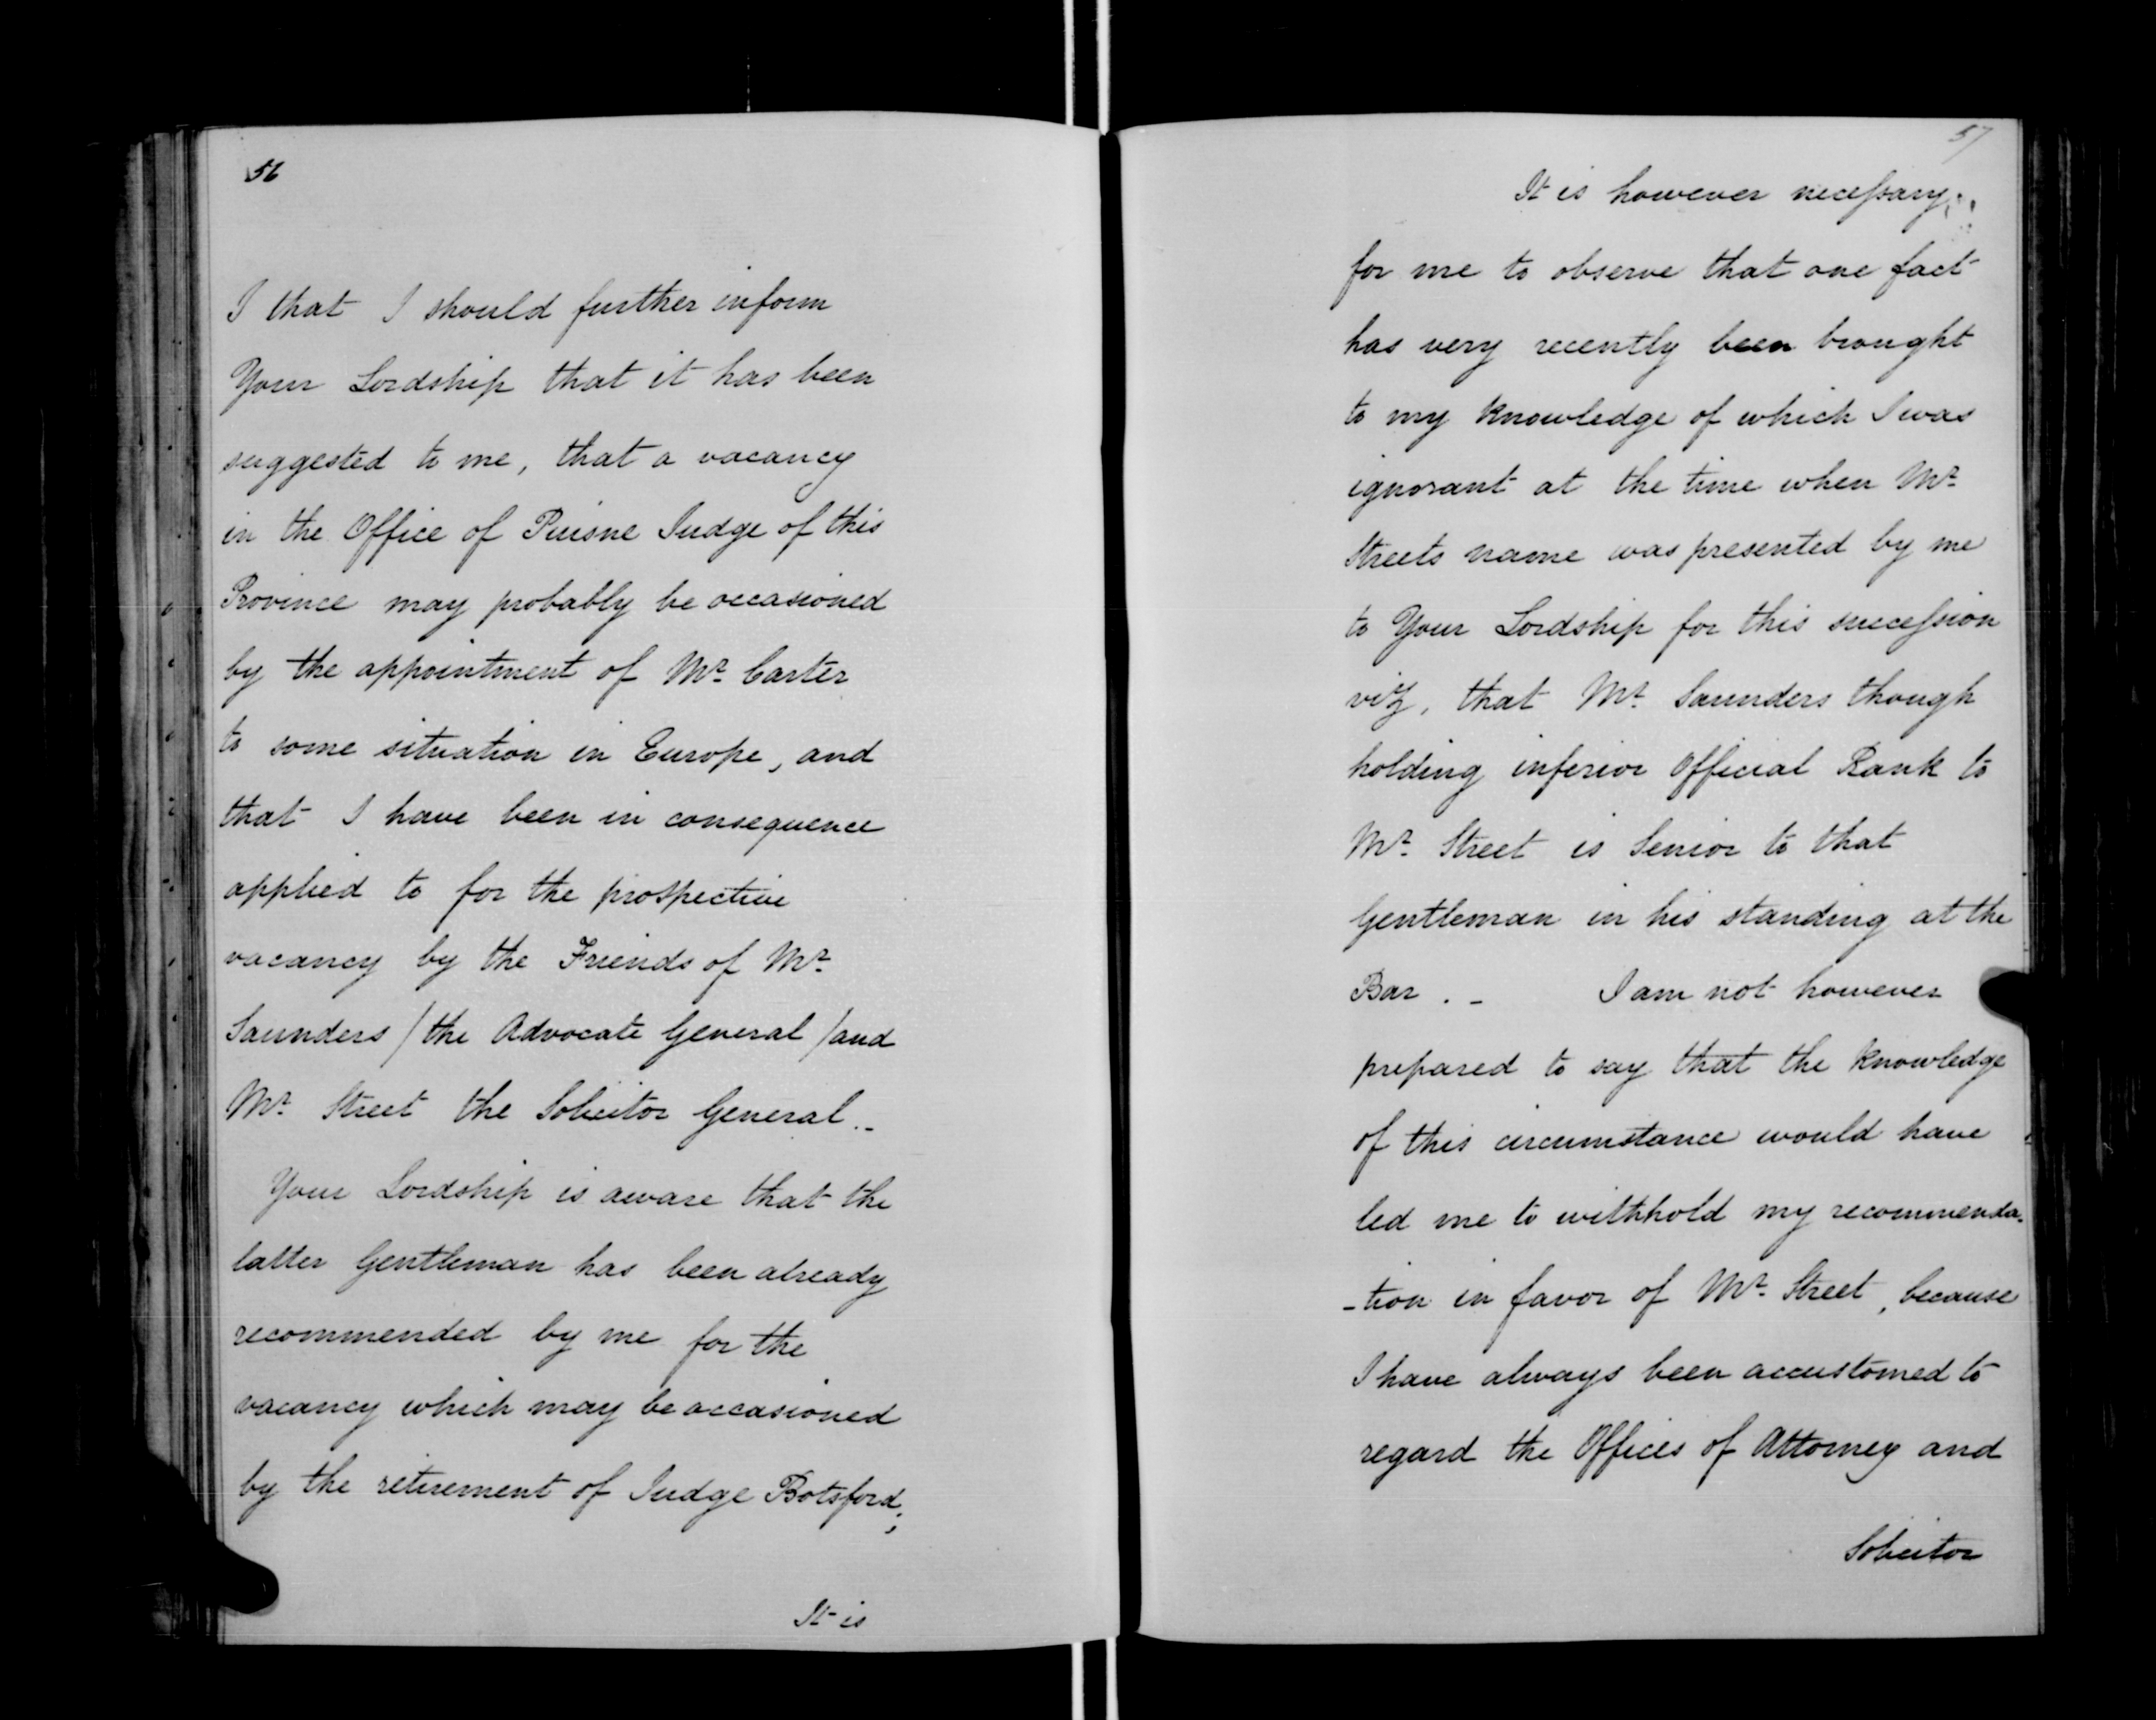 56
I that I should further inform
Your Lordship that it has been
suggested to me, that a vacancy
in the Office of Puisne Judge of this
Province may probably be occasioned
by the appointment of Mr. Carter
to some situation in Europe, and
that I have been in consequence
applied to for the prospective
vacancy by the Friends of Mr.
Saunders / the Advocate General / and
Mr. Street the Solicitor General.-
Your Lordship is aware that the
latter Gentleman has been already
recommended by me for the
vacancy which may be occasioned
by the retirement of Judge Botsford;
It is
57
It is however necessary
for me to observe that one fact
has very recently been brought
to my knowledge of which I was
ignorant at the time when Mr.
Streets name was presented by me
to Your Lordship for this succession
viz, that Mr. Saunders though
holding inferior Official Rank to
Mr. Street is Senior to that
Gentleman in his standing at the
Bar . - I am not however
prepared to say that the knowledge
of this circumstance would have
led me to withhold my recommenda-
-tion in favor of Mr. Street, because
I have always been accustomed to
regard the Offices of Attorney and
Solicitor